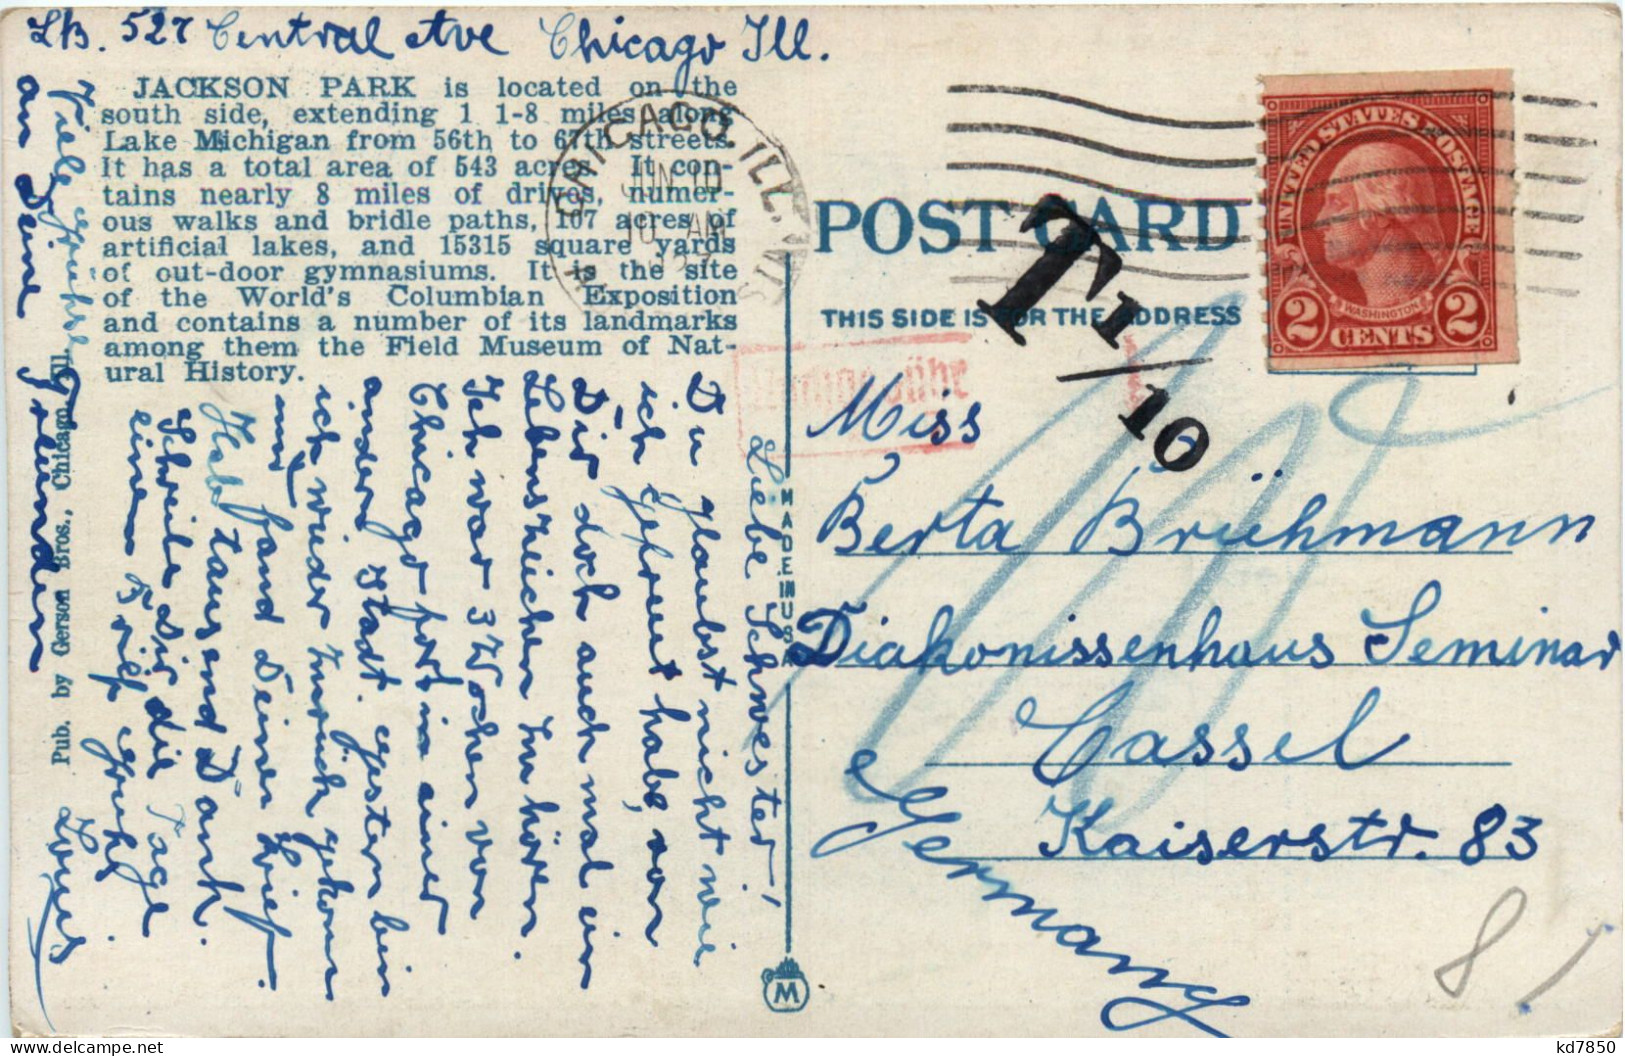 LB. 527 Central Ave Chicago Ill.
JACKSON PARK is located on the
south side, extending 1 1-8 miles along
Lake Michigan from 56th to 67th streets.
It has a total area of 543 acres. It con-
tains nearly 8 miles of drives, numer-
ous walks and bridle paths, 107 acres of
artificial lakes, and 15315 square yards
of out-door gymnasiums. It is the site
of the World's Columbian Exposition
and contains a number of its landmarks
among them the Field Museum of Nat-
ural History.
Liebe Schwester!
Du glaubst nicht wie
ich gefreut habe, von
Dir doch auch mal ein
Lebenszeichen zu hören.
Ich war 3 Wochen von
Chicago fort in einer
andern Stadt. gestern bin
ich wieder zurück gekom
und fand Deinen Brief.
Hab tausend Dank.
Schreibe Dir die Tage
einen Brief. Gruhs
Louis
Viele Grühse
an Deine Freundin
Pub. by Gerson Bros., Chicago, Ill.
MADE IN USA
M
CHICAGO, ILL.
JUN 10
10 AM
POST CARD
THIS SIDE IS FOR THE ADDRESS
T 1/10
Nachgebühr
UNITED STATES POSTAGE
WASHINGTON
2 CENTS 2
Miss
Berta Brühmann
Diakonissenhaus Seminar
Cassel
Kaiserstr. 83
Germany
8
kd7850